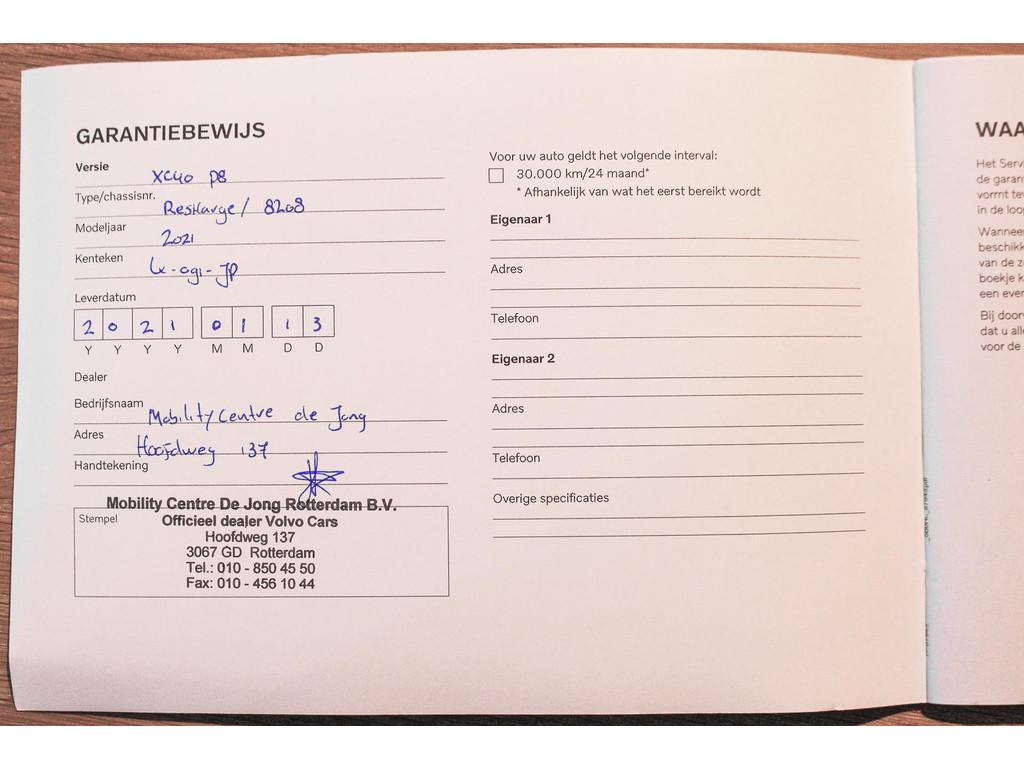 GARANTIEBEWIJS
Versie XC40 P8
Type/chassisnr. Rescharge / 8208
Modeljaar 2021
Kenteken
Leverdatum
2 0 2 1 0 1 1 3
Y Y Y Y M M D D
Dealer
Bedrijfsnaam Mobility Centre de Jong
Adres Hoofdweg 137
Handtekening
Mobility Centre De Jong Rotterdam B.V.
Stempel Officieel dealer Volvo Cars
Hoofdweg 137
3067 GD Rotterdam
Tel.: 010 - 850 45 50
Fax: 010 - 456 10 44
Voor uw auto geldt het volgende interval:
30.000 km/24 maand*
* Afhankelijk van wat het eerst bereikt wordt
Eigenaar 1
Adres
Telefoon
Eigenaar 2
Adres
Telefoon
Overige specificaties
WAA
Het Servi
de garan
vormt te
in de loo
Wanneer
beschikk
van de z
boekje k
een ever
Bij door
dat u alle
voor de